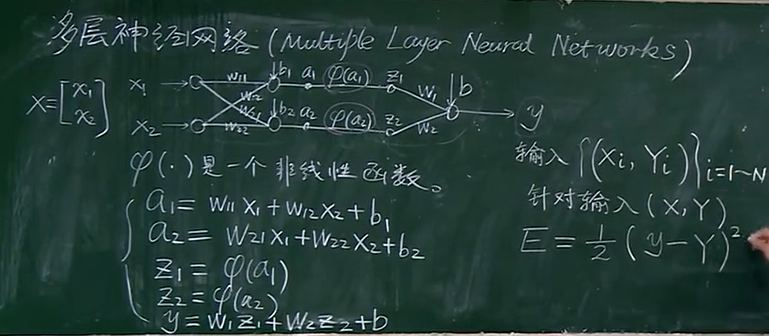 多层神经网络 (Multiple Layer Neural Networks)
X = [x₁ x₂]
x₁ w₁₁ b₁ a₁ φ(a₁) z₁ w₁ b
w₁₂
w₂₁
x₂ w₂₂ b₂ a₂ φ(a₂) z₂ w₂ y
φ(·) 是一个非线性函数。
a₁ = w₁₁x₁ + w₁₂x₂ + b₁
a₂ = w₂₁x₁ + w₂₂x₂ + b₂
z₁ = φ(a₁)
z₂ = φ(a₂)
y = w₁z₁ + w₂z₂ + b
输入 {(Xᵢ, Yᵢ)}ᵢ₌₁~N
针对输入 (X, Y)
E = ½ (y − Y)²